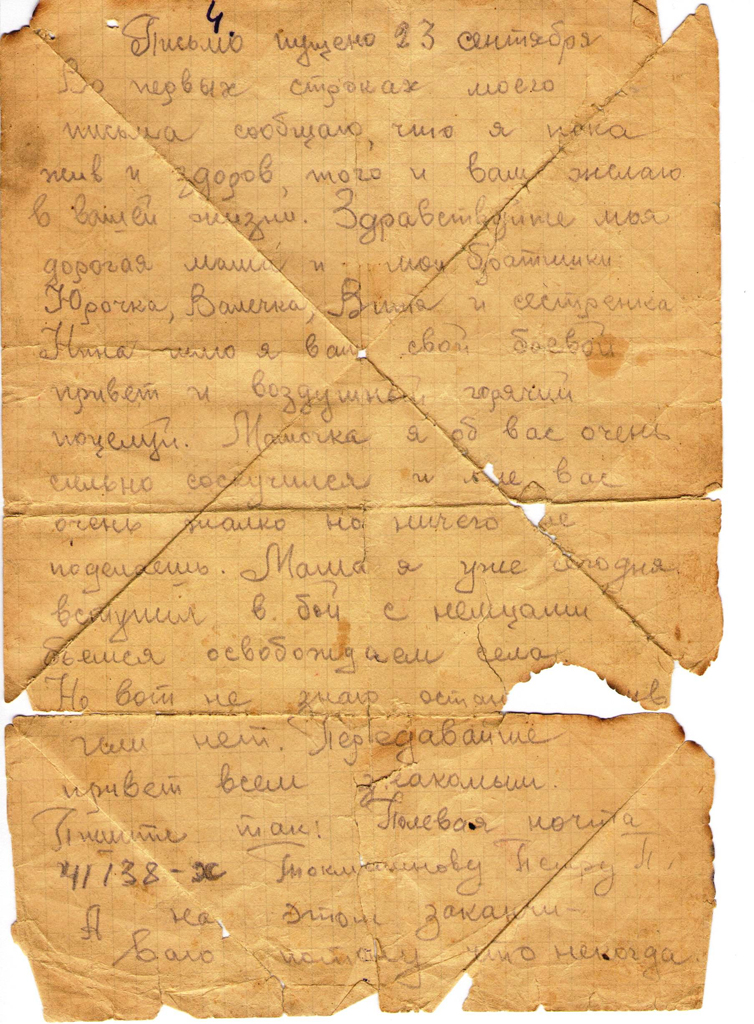 4.
Письмо пущено 23 сентября
Во первых строках моего
письма сообщаю, что я пока
жив и здоров, того и вам желаю
в вашей жизни. Здравствуйте моя
дорогая мама и мои братишки
Юрочка, Валечка, Витя и сестренка
Нина шлю я вам свой боевой
привет и воздушный горячий
поцелуй. Мамочка я об вас очень
сильно соскучился и мне вас
очень жалко но ничего не
поделаешь. Мама я уже сегодня
вступил в бой с немцами
бьемся освобождаем села
Но вот не знаю
или нет. Передавайте
привет всем знакомым.
Пишите так: Полевая почта
41138-х Петру П.
А на этом заканчи-
ваю потому что некогда.